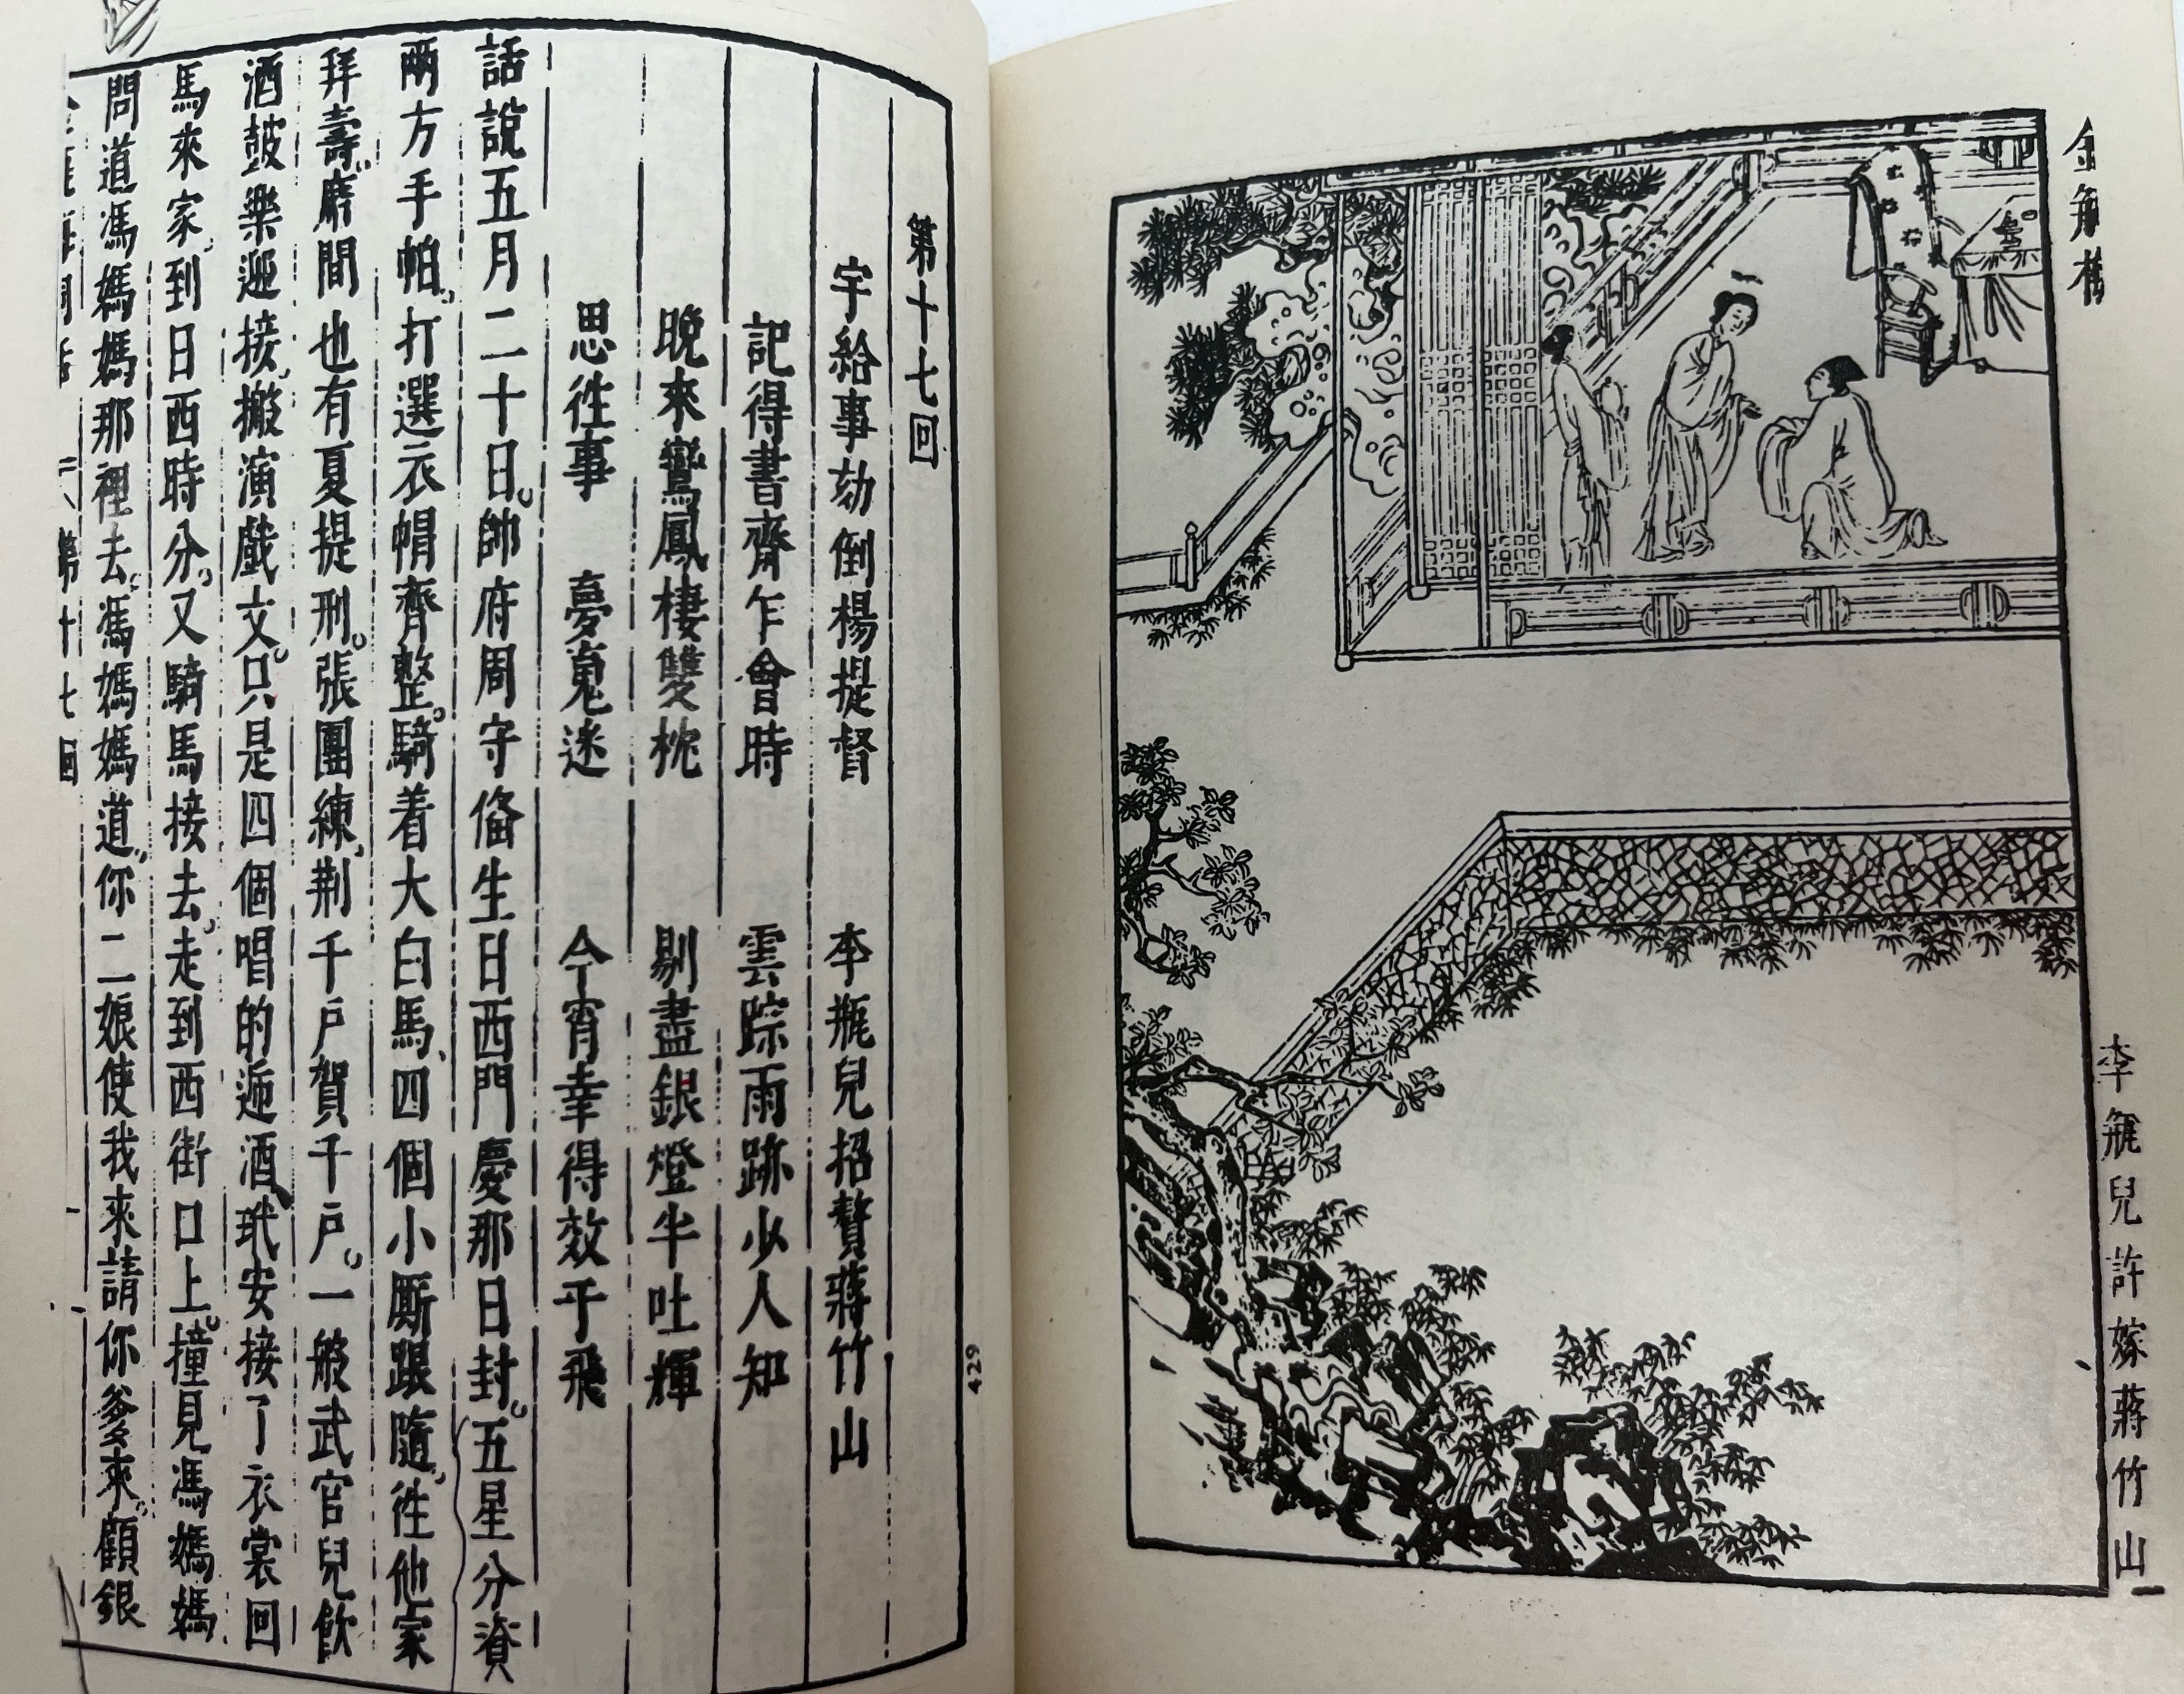 金瓶梅
李瓶兒許嫁蔣竹山
429
第十七回
宇給事劾倒楊提督 李瓶兒招贅蔣竹山
記得書齋乍會時 雲踪雨跡少人知
晚來鸞鳳棲雙枕 剔盡銀燈半吐輝
思徃事 夢䰟迷 今宵幸得效于飛
話說五月二十日。帥府周守俻生日西門慶那日封。五星分資
兩方手帕。打選衣帽齊整。騎着大白馬、四個小厮跟隨。徃他家
拜壽。席間也有夏提刑。張團練、荆千戶賀千戶。一般武官兒飲
酒皷樂迎接。搬演戲文。只是四個唱的遞酒、玳安接了衣裳回
馬來家。到日西時分。又騎馬接去。走到西街口上。撞見馮媽媽
問道馮媽媽那裡去。馮媽媽道。你二娘使我來請你爹來。顧銀
第十七回